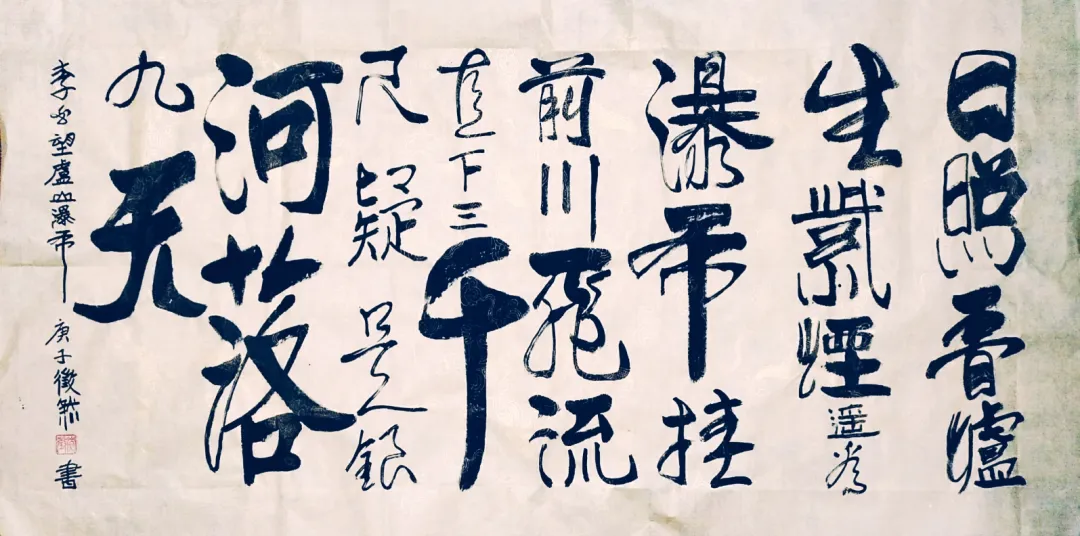 日照香爐
生紫煙遥看
瀑布挂
前川飛流
直下三千
尺疑是銀
河落
九天
李白望廬山瀑布
庚子徵
書